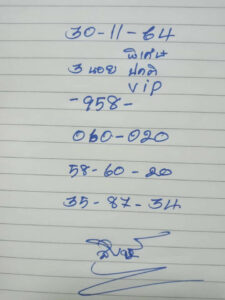 30-11-64
พิเศษ
3 นอย ปกติ
VIP
-958-
060-020
58-60-20
35-87-34